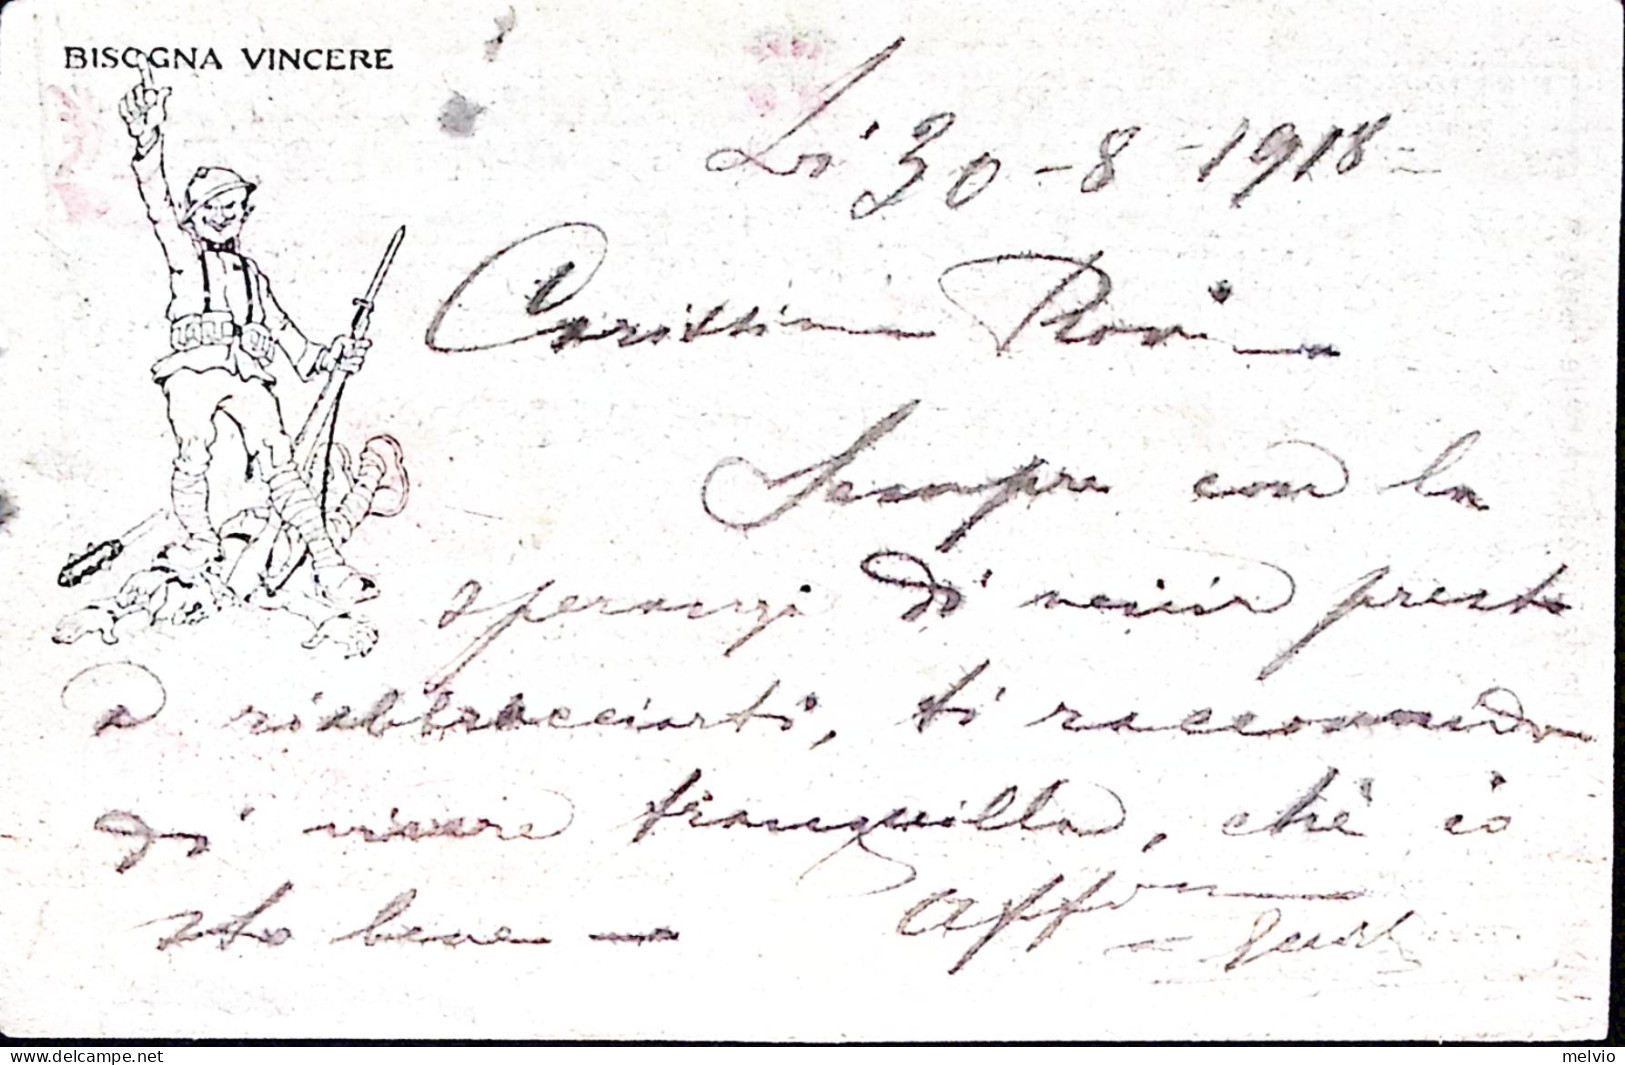 BISOGNA VINCERE
Li 30-8-1918=
Carissima
Sempre con la
speranza di venir presto
a riabbracciarti, ti raccomando
di vivere tranquilla, chè io
sto bene — Aff
melvio
delcampe.net